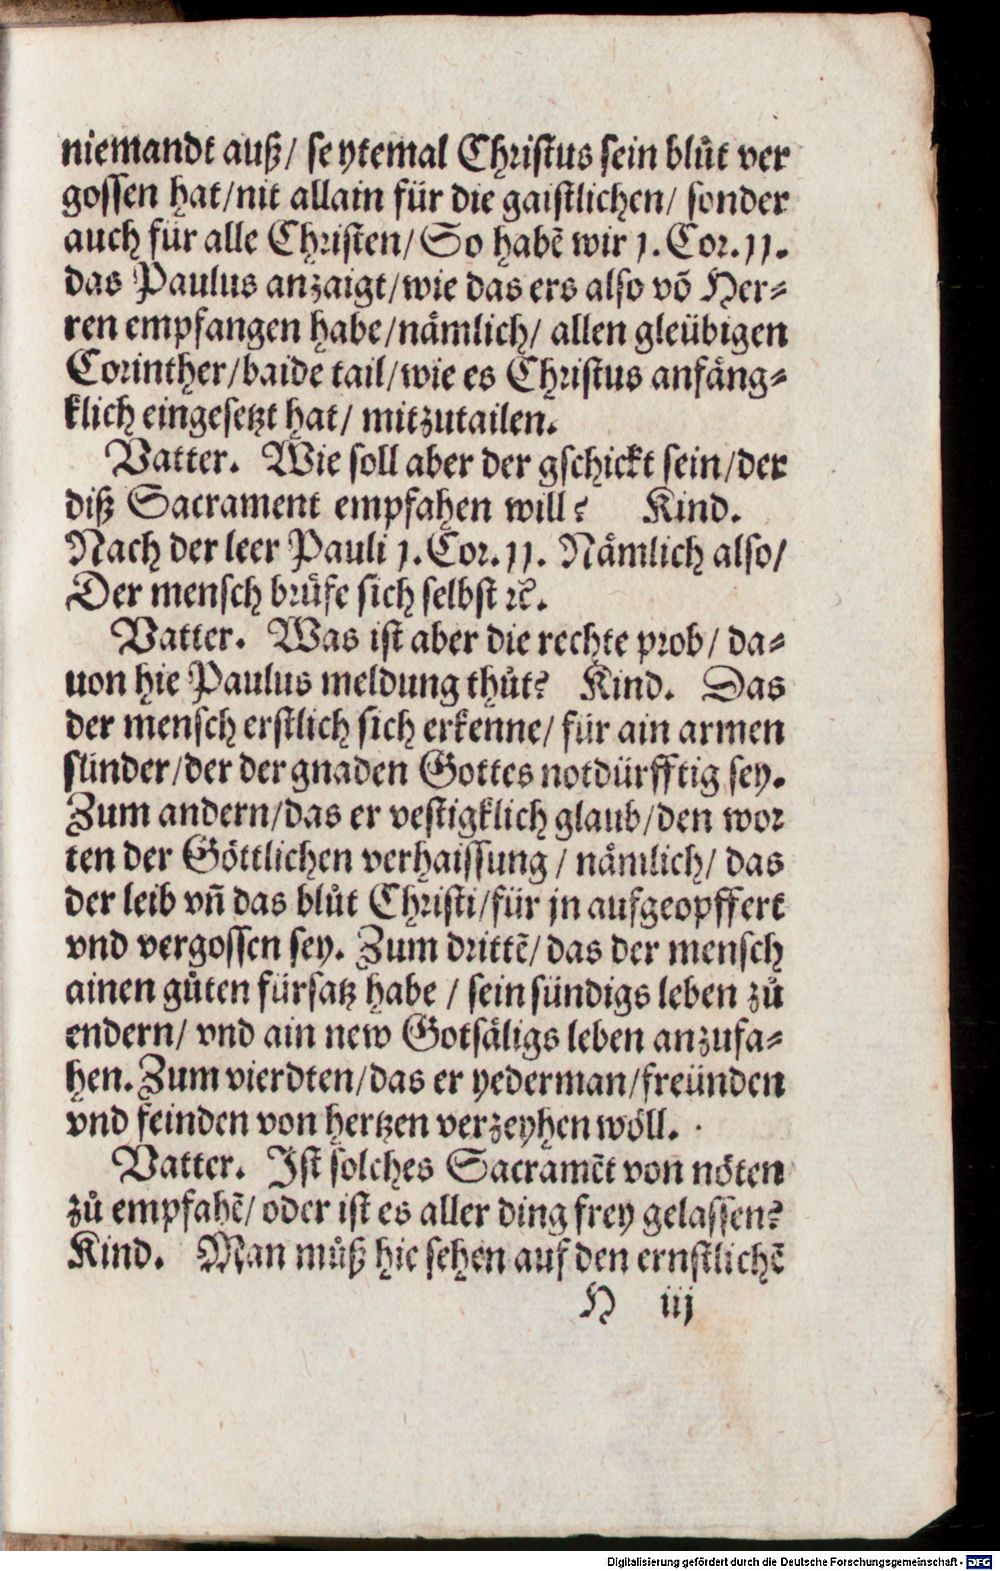 niemandt auß/ seytemal Christus sein blůt ver
gossen hat/nit allain für die gaistlichen/ sonder
auch für alle Christen/ So habẽ wir 1. Cor. 11.
das Paulus anzaigt/wie das ers also võ Her-
ren empfangen habe/nämlich/ allen gleübigen
Corinther/baide tail/wie es Christus anfäng-
klich eingesetzt hat/ mitzutailen.
Vatter. Wie soll aber der gschickt sein/der
diß Sacrament empfahen will? Kind.
Nach der leer Pauli 1. Cor. 11. Nämlich also/
Der mensch brüfe sich selbst ꝛc̃.
Vatter. Was ist aber die rechte prob/ da-
uon hie Paulus meldung thůt? Kind. Das
der mensch erstlich sich erkenne/ für ain armen
sünder/der der gnaden Gottes notdürfftig sey.
Zum andern/das er vestigklich glaub/den wor
ten der Göttlichen verhaissung / nämlich/ das
der leib vñ das blůt Christi/für jn aufgeopffert
vnd vergossen sey. Zum drittẽ/ das der mensch
ainen gůten fürsatz habe / sein sündigs leben zů
endern/ vnd ain new Gotsäligs leben anzufa-
hen. Zum vierdten/das er yederman/freünden
vnd feinden von hertzen verzeyhen wöll.
Vatter. Ist solches Sacramẽt von nöten
zů empfahẽ/ oder ist es aller ding frey gelassen?
Kind. Man můß hie sehen auf den ernstlichẽ
H iij
Digitalisierung gefördert durch die Deutsche Forschungsgemeinschaft - DFG